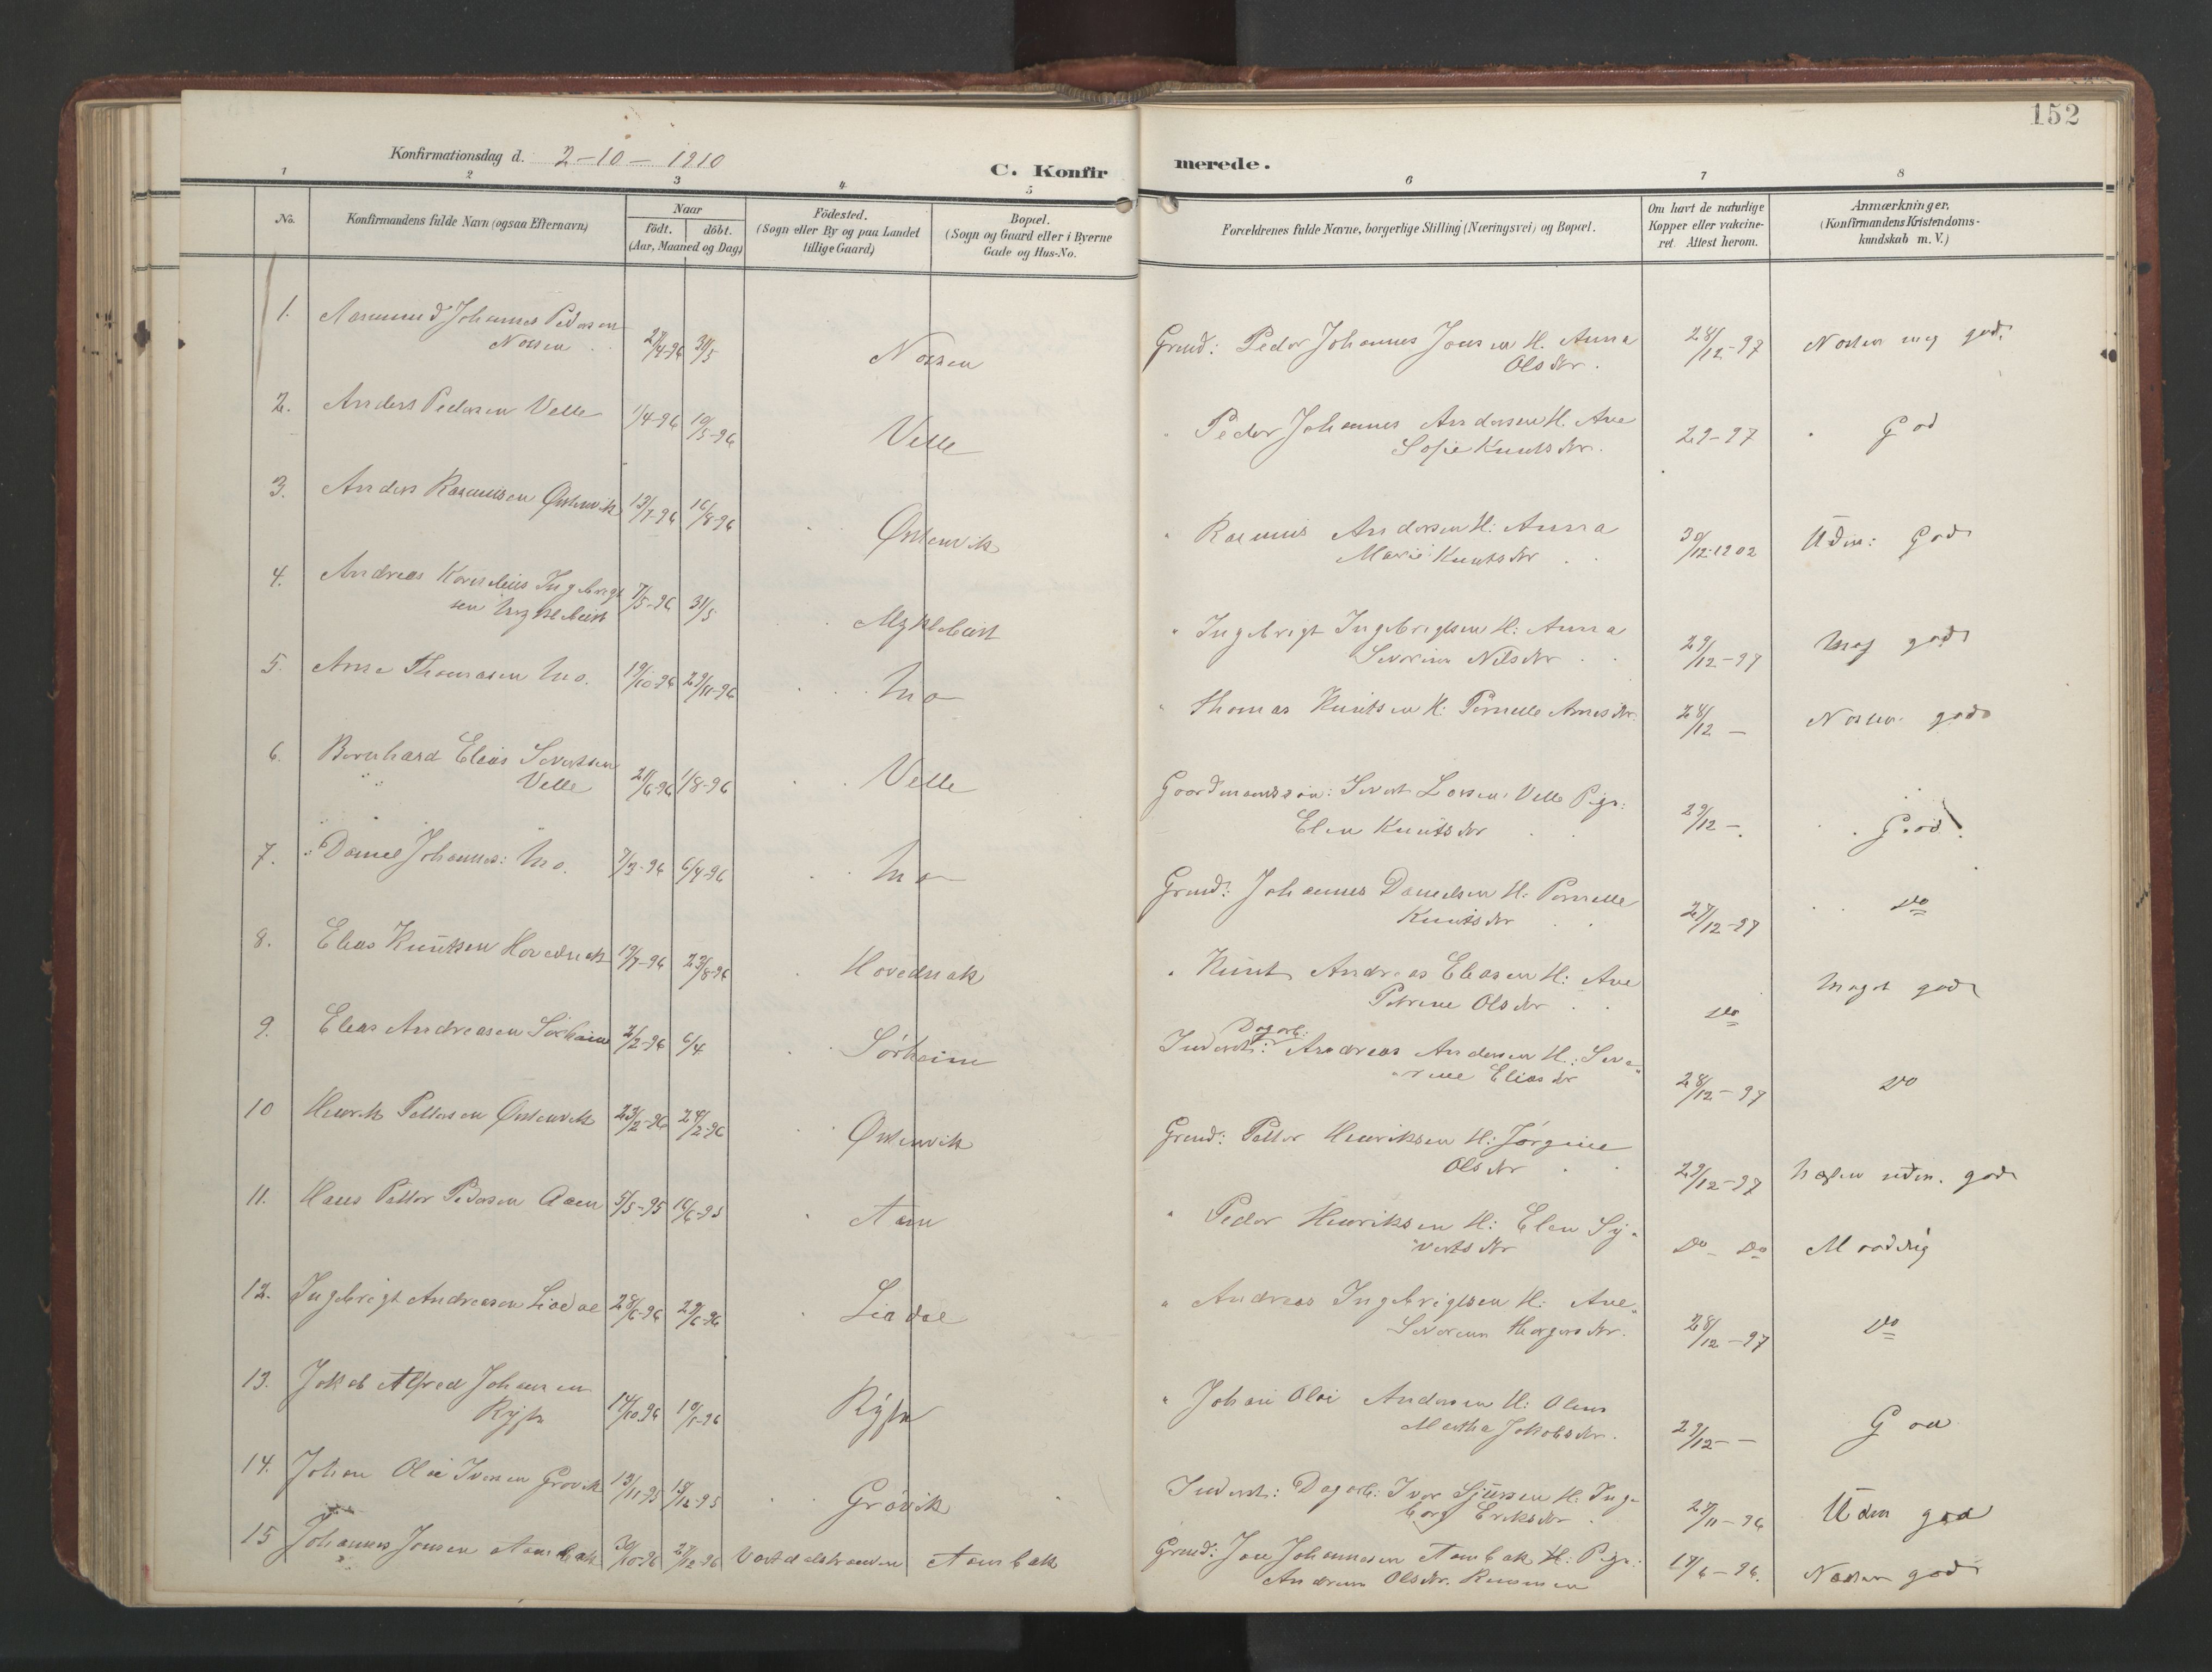 152
Konfirmationsdag d. 2-10-1910
C. Konfirmerede.
1 2 3 4 5 6 7 8
No.
Konfirmandens fulde Navn (ogsaa Efternavn)
Naar
födt. döbt.
(Aar, Maaned og Dag)
Födested.
(Sogn eller By og paa Landet
tillige Gaard)
Bopæl.
(Sogn og Gaard eller i Byerne
Gade og Hus-No.
Forældrenes fulde Navne, borgerlige Stilling (Næringsvei) og Bopæl.
Om havt de naturlige
Kopper eller vakcine-
ret. Attest herom.
Anmærkninger.
(Konfirmandens Kristendoms-
kundskab m. V.)
1. Johannes Pedersen 31/5 Grmd: Peder Johannes Jonsen H. Anna 28/12-97 god
Olsdtr.
2. Anders Pedersen Velle 1/4-96 10/5-96 Velle " Peder Johannes Andersen H. Ane 29-97 God
Sofie Knutsdtr.
3. Anders Rasmusen Østenvik 13/7-96 16/8-96 Østenvik " Rasmus Andersen H: Anna 30/12-1902 Udm: God
Marie Knutsdtr
4. Andreas Kornelius Ingebrigt 7/5-96 31/5 Myklebust " Ingebrigt Ingebrigtsen H: Anna 29/12-97 Meg god
sen Myklebust Severine Nilsdtr
5. Arne Thomasen Mo. 19/10-96 29/11-96 Mo " Thomas Knutsen H: Pernelle Arnesdtr. 28/12 - Næsten god
6. Bernhard Elias Severtsen 21/6-96 1/8-96 Velle Gaardmandssøn: Severt Larsen Velle Pige: 29/12 - God
Velle Elen Knutsdtr
7. Daniel Johannes: Mo. 7/3-96 6/4-96 Mo Grmd: Johannes Danielsen H: Pernelle 27/12-97 Do
Knutsdtr
8. Elias Knutsen Hovednak 19/7-96 23/8-96 Hovednak " Knut Andreas Eliasen H: Ane Do Meget god
Petrine Olsdtr
9. Elias Andreasen Sørheim 2/2-96 6/4 Sørheim Inderst: Dagarb: Andreas Andersen H: Seve 28/12-97 Do
rine Eliasdtr
10 Henrik Pettersen Østenvik 23/2-96 24/2-96 Østenvik Grmd: Petter Henriksen H: Jørgine 29/12-97 Næsten udm. god
Olsdtr
11. Hans Petter Pedersen Aam 5/5-95 16/6-95 Aam " Peder Henriksen H: Elen Sy- Do - Do Maadelig
vertsdtr
12. Ingebrigt Andreasen Liadal 28/6-96 29/6-96 Liadal " Andreas Ingebrigtsen H: Ane 28/12-97 Do
Severine
13. Jakob Alfred Johansen 14/10-96 Grmd " Johan Olai Andersen H: Oline 29/12 - God
Martha Jakobsdtr.
14. Johan Olai Iversen Grøvik 13/11-95 15/12-95 Grøvik Inderst: Dagarb: Iver Sjursen H: Inge- 27/11-96 Udm god
borg Eriksdtr
15 Johannes Jonsen Aambak 27/12-96 Aambak Grmd: Jon Johannesen Aambak H: Pige: 17/6-96. Næsten god
Olsdtr.